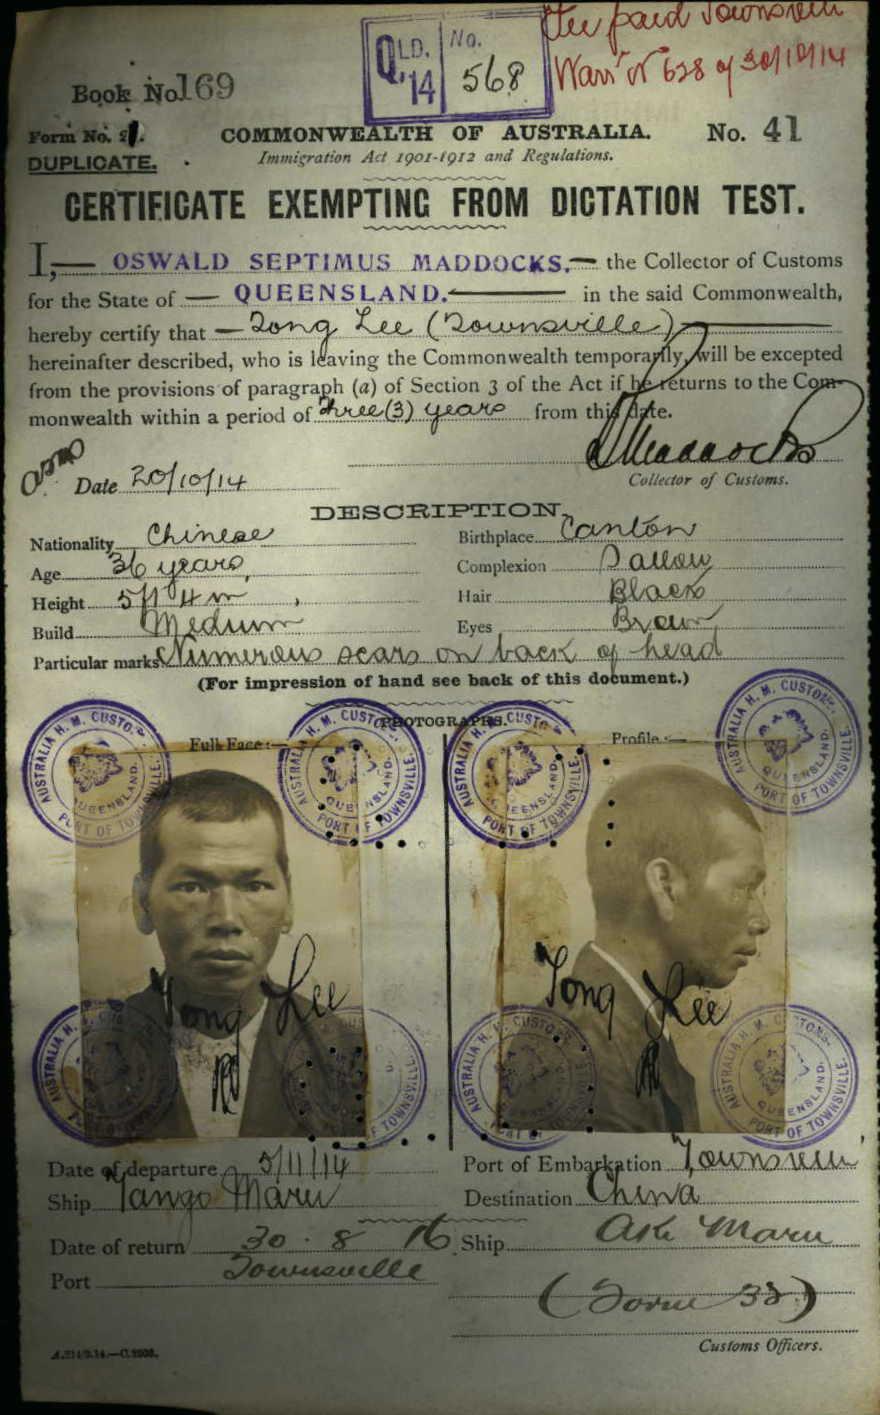 Fee paid Townsville
Warr't No 628 of 30/10/14
QLD. '14 No. 568
Book No 169
Form No. 21.
DUPLICATE.
COMMONWEALTH OF AUSTRALIA. No. 41
Immigration Act 1901-1912 and Regulations.
CERTIFICATE EXEMPTING FROM DICTATION TEST.
I, OSWALD SEPTIMUS MADDOCKS, the Collector of Customs
for the State of QUEENSLAND. in the said Commonwealth,
hereby certify that Tong Lee (Townsville)
hereinafter described, who is leaving the Commonwealth temporarily, will be excepted
from the provisions of paragraph (a) of Section 3 of the Act if he returns to the Com-
monwealth within a period of Three (3) years from this date.
OSMaddocks
Date 20/10/14
Collector of Customs.
DESCRIPTION.
Nationality Chinese Birthplace Canton
Age 36 years, Complexion Sallow
Height 5ft 4in Hair Black
Build Medium Eyes Brown
Particular marks Numerous scars on back of head
(For impression of hand see back of this document.)
PHOTOGRAPHS.
Full Face:— Profile:—
AUSTRALIA H. M. CUSTOMS. QUEENSLAND. PORT OF TOWNSVILLE.
AUSTRALIA H. M. CUSTOMS. QUEENSLAND. PORT OF TOWNSVILLE.
AUSTRALIA H. M. CUSTOMS. QUEENSLAND. PORT OF TOWNSVILLE.
AUSTRALIA H. M. CUSTOMS. QUEENSLAND. PORT OF TOWNSVILLE.
Tong Lee Tong Lee
AUSTRALIA H. M. CUSTOMS. QUEENSLAND. PORT OF TOWNSVILLE.
Date of departure 5/11/14 Port of Embarkation Townsville
Ship Tango Maru Destination China
Date of return 30.8.16 Ship Aki Maru
Port Townsville
(Form 32)
Customs Officers.